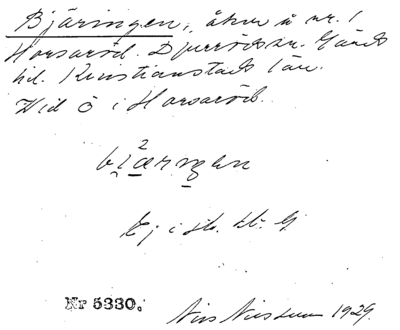 Bjäringen, åker å nr. 1
Horsaröd. Djurröds sn. Gärds
hd. Kristianstads län.
Wid ö i Horsaröd.
Ej i
Nr 5330.
Nils Nilsson 1929.